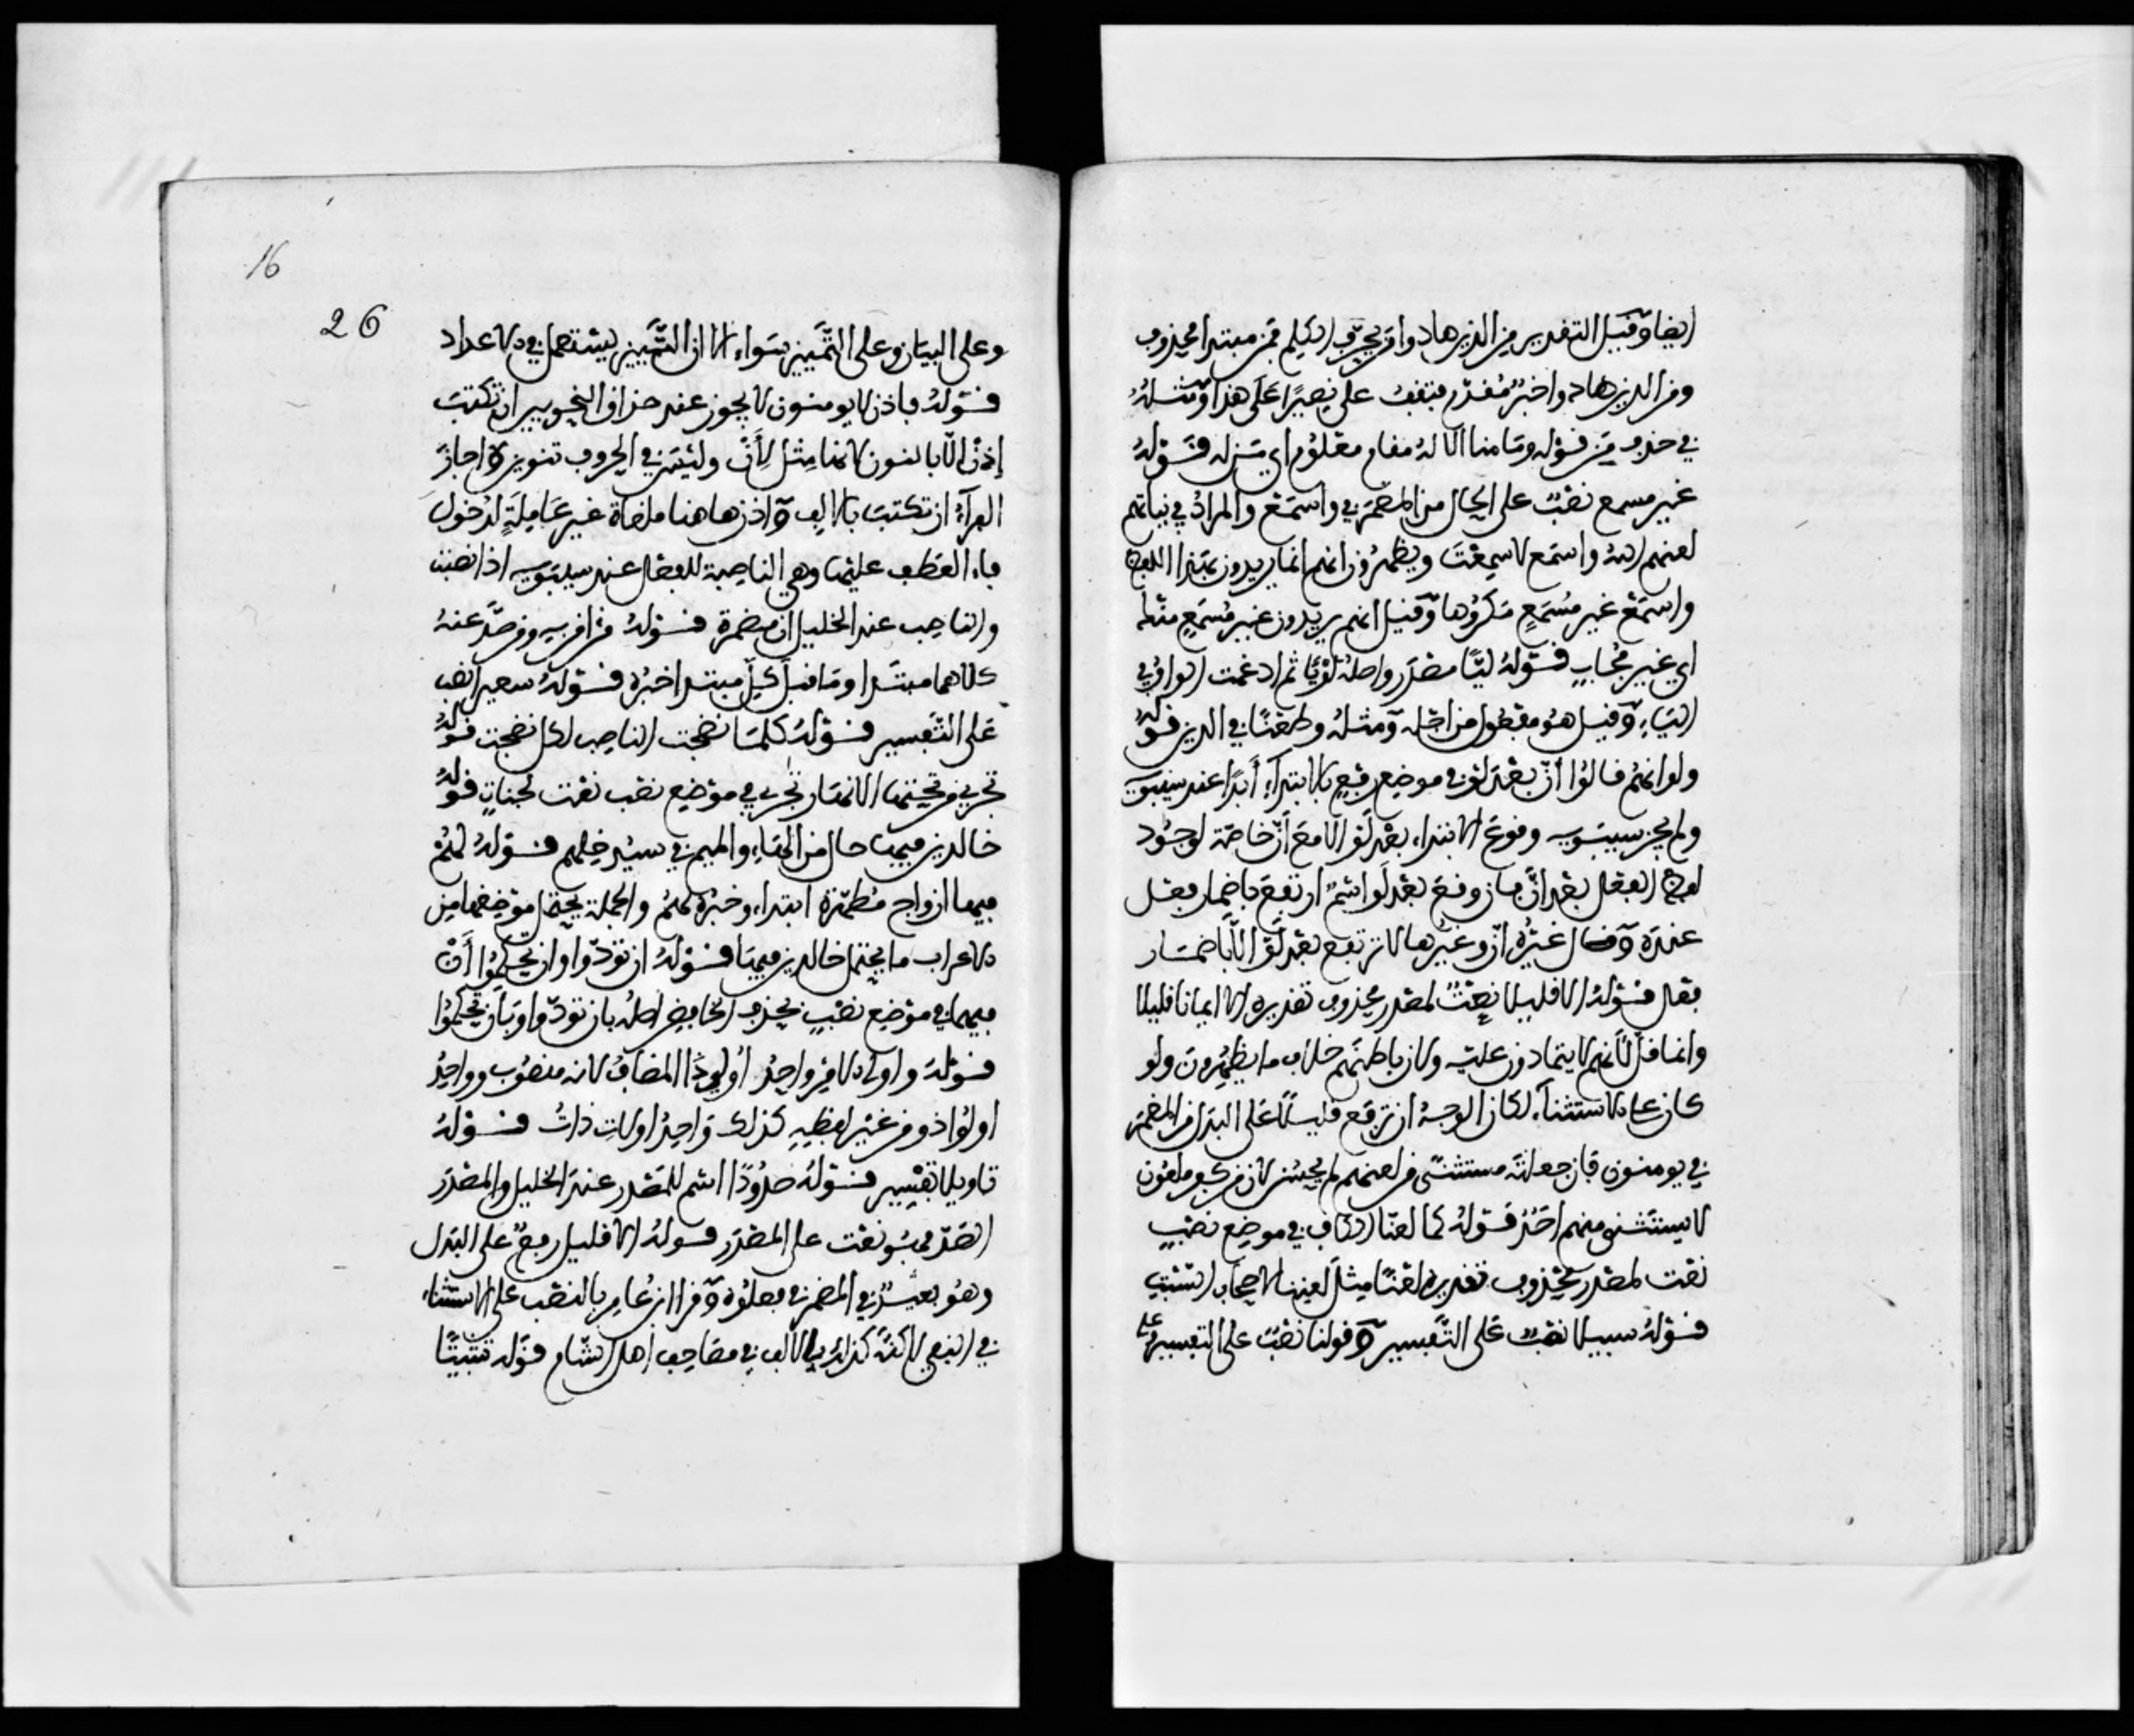 ايضا وقيل التقدير من الذين هادوا من يحرف الكلم فمن مبتدا محذوف
ومن الذين هادوا خبر مقدم فتقف على نصيرا على هذا ومثله
في حذف من قوله وما منا الا له مقام معلوم اي من له قوله
غير مسمع نصب على الحال من المضمر في واسمع والمراد في نياتهم
لعنهم الله واسمع لا سمعت ويظهرون انهم انما يريدون بهذا اللفظ
واسمع غير مسمع مكروها وقيل انهم يريدون غير مسمع منك
اي غير مجاب قوله ليا مصدر واصله لويا ثم ادغمت الواو في
الياء وقيل هو مفعول من اجله ومثله وطعنا في الدين قوله
ولو انهم قالوا أن بعد لو في موضع رفع بالابتداء أبدا عند سيبويه
ولم يجز سيبويه وقوع الابتداء بعد لو الا مع أن خاصة لوجود
لفظ الفعل بعد أن فان وقع بعد لو اسم ارتفع باضمار فعل
عنده وقال غيره أن وغيرها لا ترتفع بعد لو الا باضمار
فعل قوله الا قليلا نعت لمصدر محذوف تقديره الا ايمانا قليلا
وانما قل لأنهم لا يتمادون عليه ولان باطنهم خلاف ما يظهرون ولو
كان على الاستثناء لكان الوجه ان ترفع قليلا على البدل من المضمر
في يومنون فان جعلته مستثنى من لعنهم لم يحسن لان من كفر ملعون
لا يستثنى منهم احد قوله كما لعنا الكاف في موضع نصب
نعت لمصدر محذوف تقديره لعنا مثل لعننا لاصحاب السبت
قوله سبيلا نصب على التفسير وقولنا نصب على التفسير وعلى
16
26
وعلى البيان وعلى التمييز سواء الا ان التمييز يستعمل في الاعداد
قوله فاذن لا يوتون لا يجوز عند حذاق النحويين ان تكتب
إذن الا بالنون لانها مثل لأن وليس في الحروف تنوين واجاز
الفراء ان تكتب بالالف واذن هاهنا ملغاة غير عاملة لدخول
فاء العطف عليها وهي الناصبة للفعل عند سيبويه اذا نصبت
والناصب عند الخليل ان مضمرة قوله من امن به ومن صد عنه
كلاهما مبتدا وما قبل كل مبتدا خبره قوله سعيرا نصب
على التفسير قوله كلما نضجت الناصب لكل نضجت قوله
تجري من تحتها الانهار تجري في موضع نصب نعت لجنات قوله
خالدين فيها حال من الهاء والميم في سندخلهم قوله لهم
فيها ازواج مطهرة ابتداء وخبره لهم والجملة يحتمل موضعها من
الاعراب ما يحتمل خالدين فيها قوله ان تودوا وان تحكموا أن
فيهما في موضع نصب بحذف الخافض اصله بان تودوا وبان تحكموا
قوله واولي الامر واحد أولي ذا المضاف لانه منصوب وواحد
اولوا ذو من غير لفظه كذلك واحد اولات ذات قوله
تاويلا تفسير قوله صدودا اسم للمصدر عند الخليل والمصدر
الصد فهو نعت على المصدر قوله الا قليل رفع على البدل
في النفي لانه كذلك بالالف في مصاحف اهل الشام قوله تثبيتا